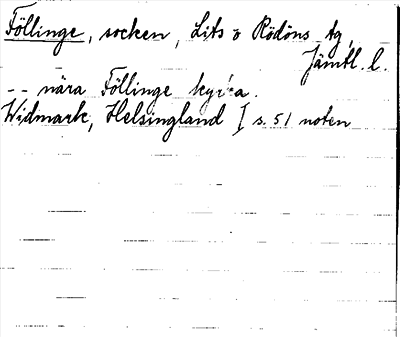 Föllinge, socken, Lits o Rödöns tg,
Jämtl. l.
-- nära Föllinge kyrka.
Widmark, Helsingland I s. 51 noten